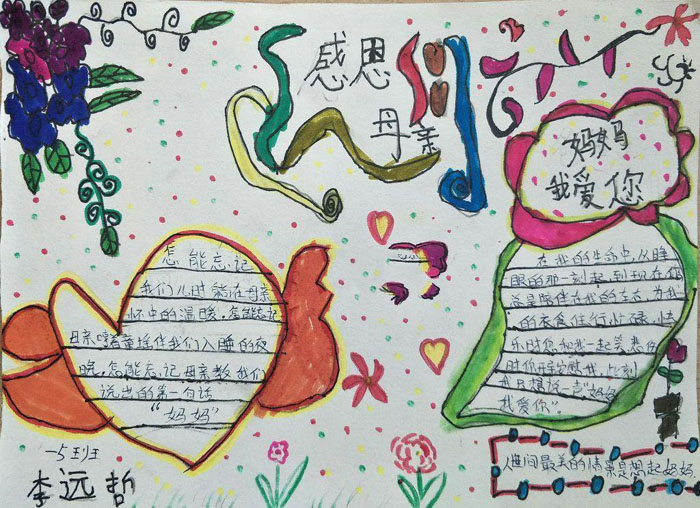 感恩
母亲
妈妈
我爱您
怎能忘记
我们儿时躺在母亲
怀中的温暖,怎能忘记
母亲哼着摇伴我们入睡的夜
晚,怎能忘记母亲教我们
说出的第一句话
“妈妈”
在我的生命中,从睁
眼的那一刻起,到现在您
总是陪伴在我的左右,为我
的衣食住行忙碌,快
乐时您和我一起笑,悲伤
时你安慰我,此刻
我只想说一声“妈妈
我爱你”。
人世间最美的情景是想起妈妈
一5班
李远哲